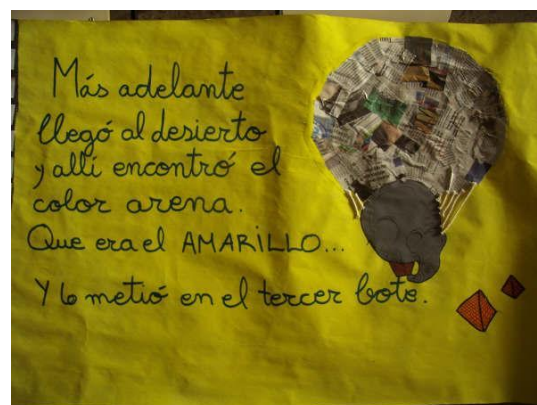 Más adelante
llegó al desierto
y allí encontró el
color arena.
Que era el AMARILLO...
Y lo metió en el tercer bote.